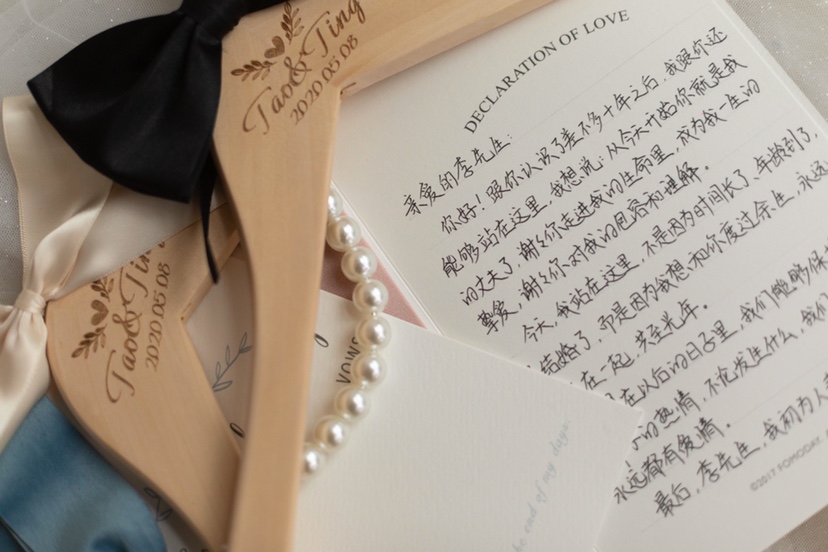 Tao&Ting
2020.05.08
Tao&Ting
2020.05.08
DECLARATION OF LOVE
亲爱的李先生:
你好！跟你认识了差不多十年之后，我跟你还
能够站在这里，我想说：从今天开始你就是我
的丈夫了，谢谢你走进我的生命里，成为我一生的
挚爱，谢谢你对我的包容和理解。
今天，我站在这里，不是因为时间长了，年龄到了，
结婚了，而是因为我想和你度过余生，永远
在一起，共至光年。
在以后的日子里，我们能够保
的热情，不论发生什么，我们
永远都有爱情。
最后，李先生，我初为人
©2017 FOMODAY.
VOWS
he end of my days.